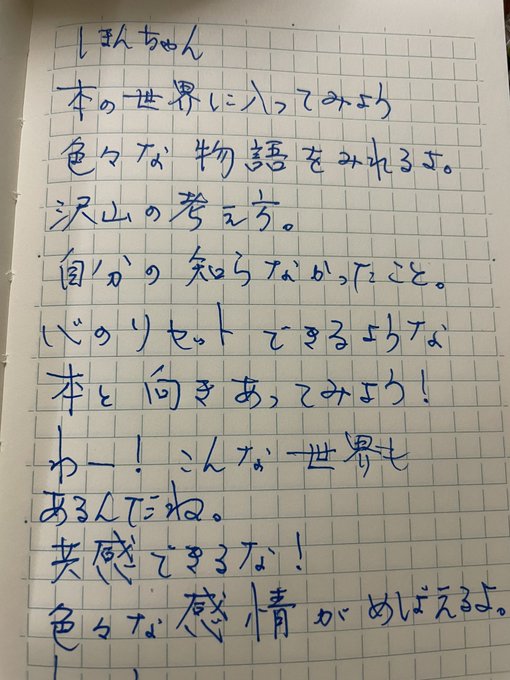 しほんちゃん
本の世界に入ってみよう
色々な物語をみれるよ。
沢山の考え方。
自分の知らなかったこと。
心のリセットできるような
本と向きあってみよう!
わー!こんな世界も
あるんだね。
共感できるな!
色々な感情がめばえるよ。